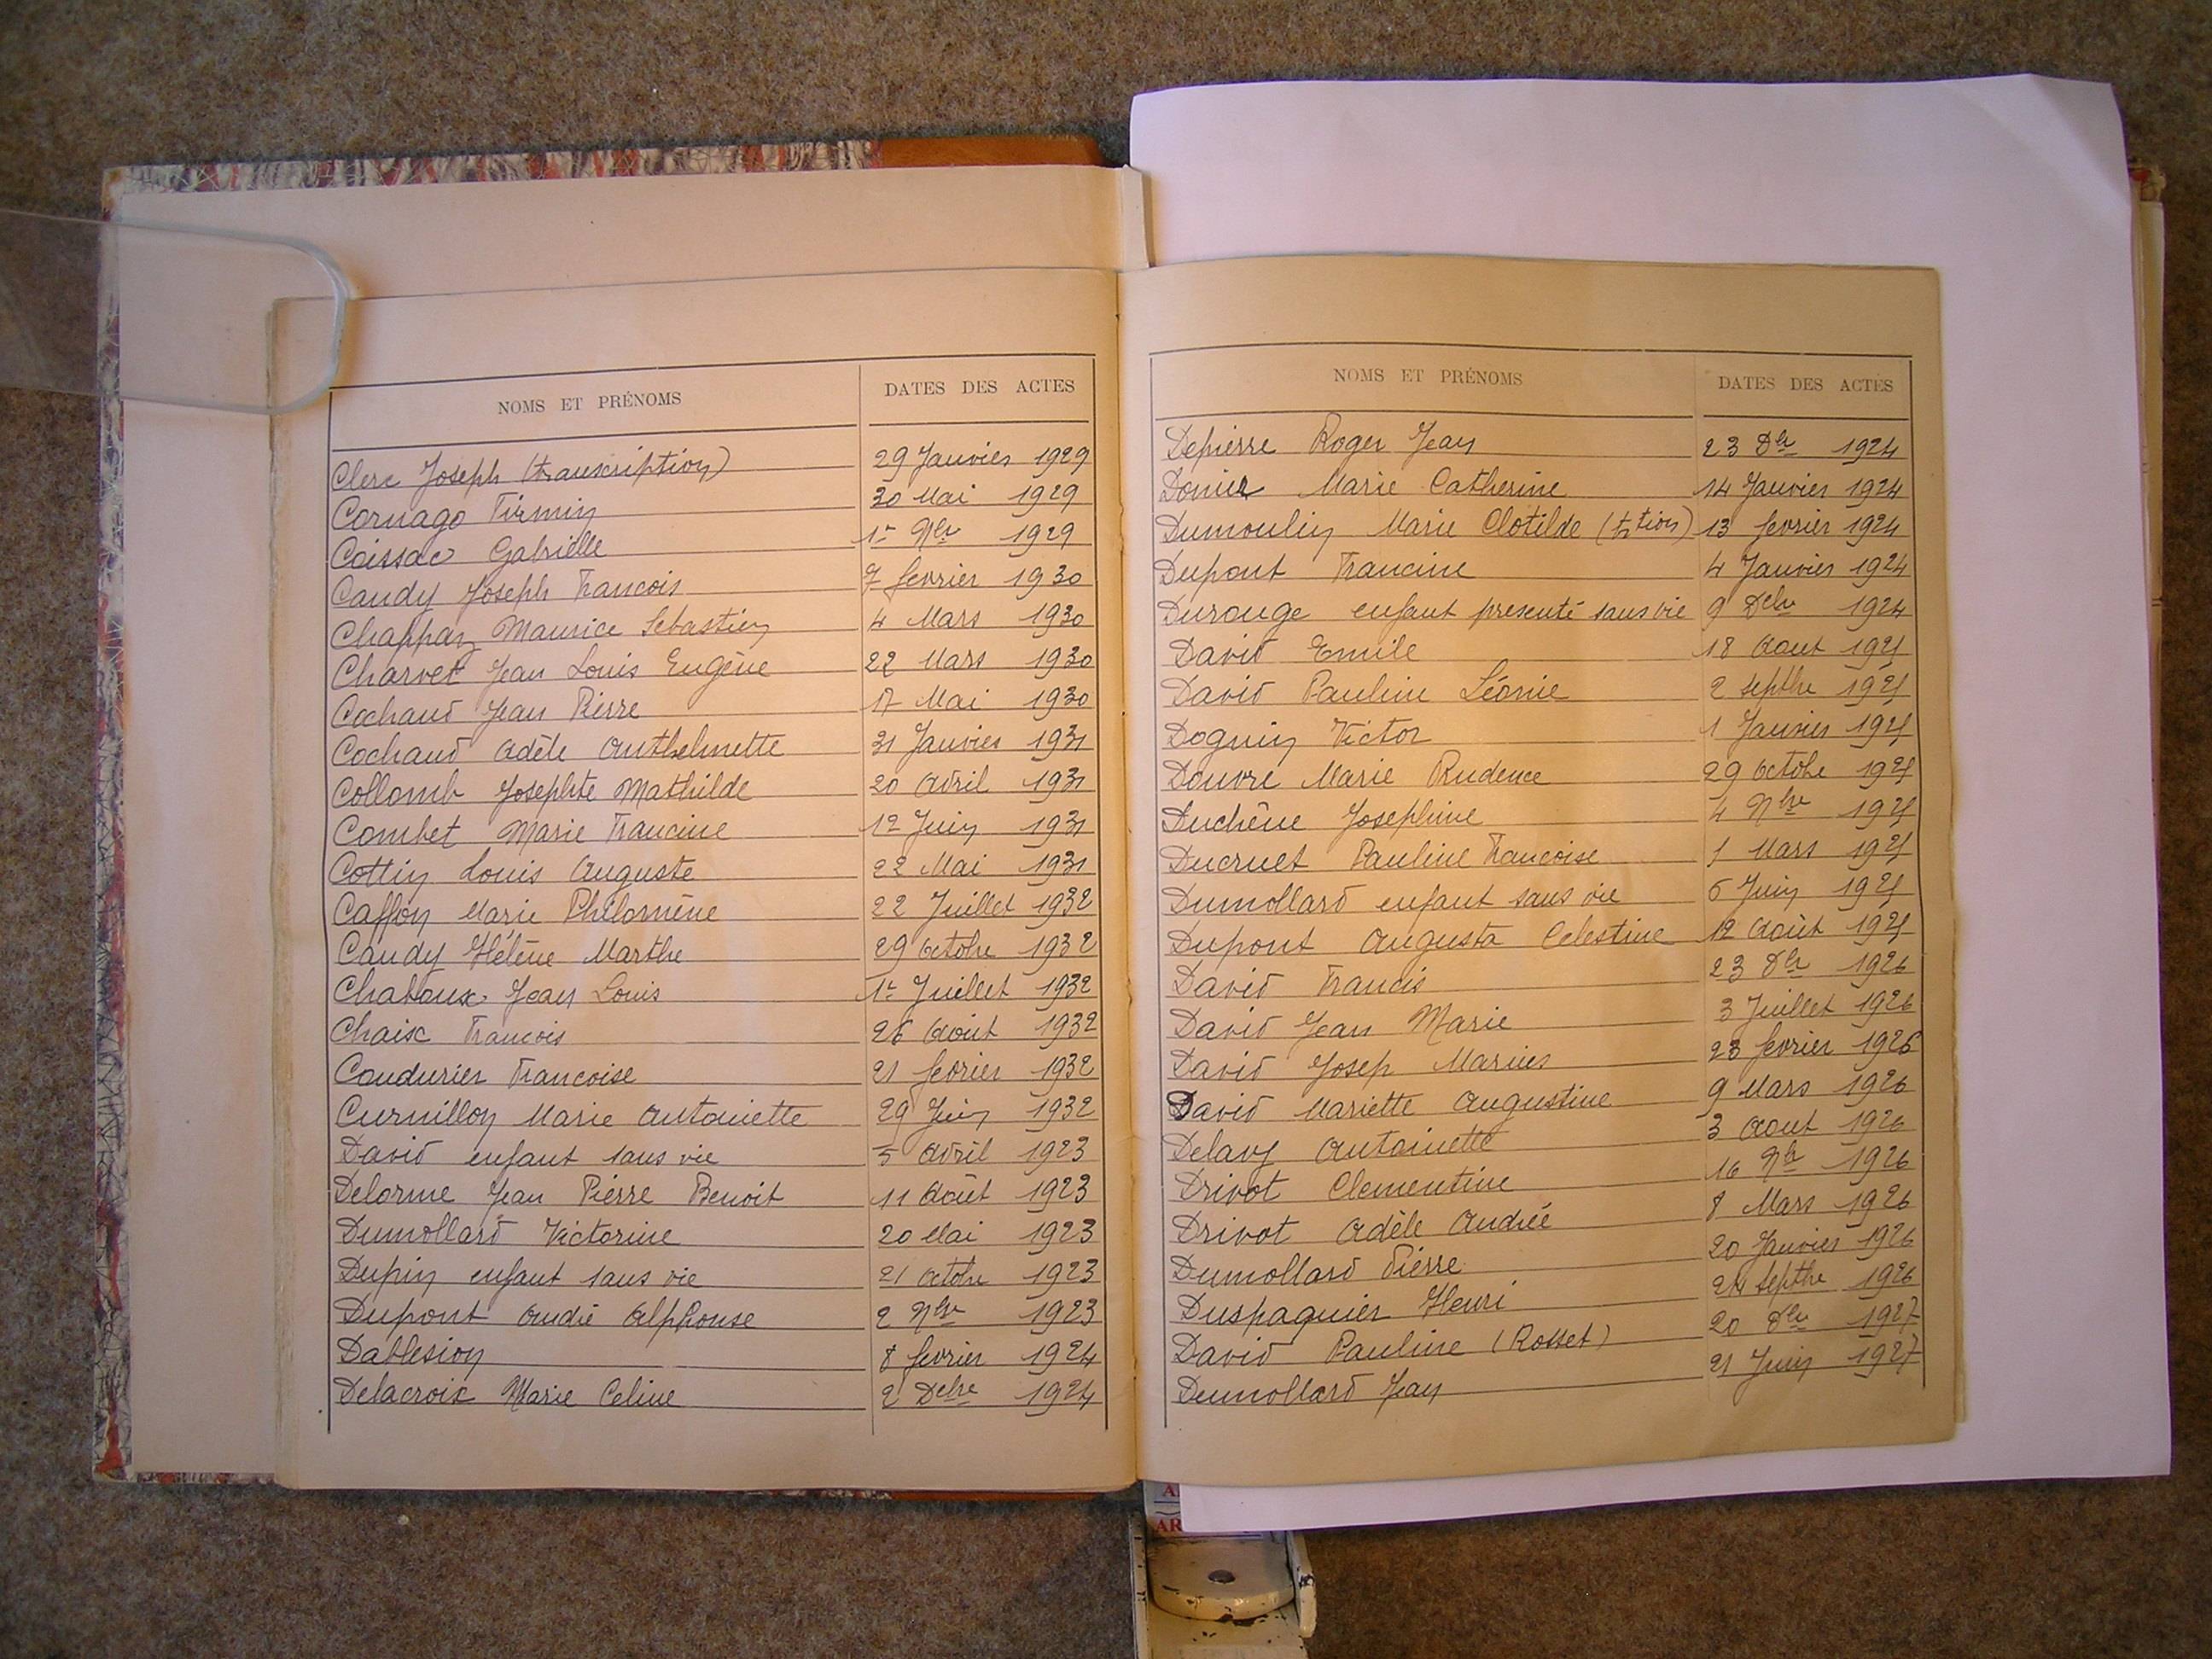 NOMS ET PRÉNOMS DATES DES ACTES
Clerc Joseph (transcription) 29 Janvier 1929
Cornago Firmin 30 Mai 1929
Coissac Gabrielle 1er Nbre 1929
Candy Joseph Francois 7 fevrier 1930
Chappaz Maurice Sebastien 4 Mars 1930
Charvet Jean Louis Eugène 22 Mars 1930
Cochaud Jean Pierre 17 Mai 1930
Cochaud Adèle Anthelmette 31 Janvier 1931
Collomb Josephte Mathilde 20 Avril 1931
Combet Marie Francine 12 Juin 1931
Cottin Louis Auguste 22 Mai 1931
Caffon Marie Philomène 22 Juillet 1932
Candy Hélène Marthe 29 Octobre 1932
Chatoux Jean Louis 1er Juillet 1932
Chaise Francois 26 Août 1932
Coudurier Francoise 21 fevrier 1932
Curnillon Marie Antoinette 29 Juin 1932
David enfant sans vie 5 Avril 1923
Delorme Jean Pierre Benoit 11 Août 1923
Dumollard Victorine 20 Mai 1923
Dupin enfant sans vie 21 Octobre 1923
Dupont André Alphonse 2 Nbre 1923
Dablesion 8 fevrier 1924
Delacroix Marie Celine 2 Dcbre 1924
NOMS ET PRÉNOMS DATES DES ACTES
Depierre Roger Jean 23 8bre 1924
Donier Marie Catherine 14 Janvier 1924
Dumoulin Marie Clotilde (trtion) 13 fevrier 1924
Dupont Francine 4 Janvier 1924
Durouge enfant presenté sans vie 9 Dcbre 1924
David Emile 18 Aout 1925
David Pauline Léonie 2 Septbre 1925
Doguin Victor 1 Janvier 1925
Douvre Marie Prudence 29 Octobre 1925
Duchêne Josephine 4 Nbre 1925
Ducruet Pauline Francoise 1 Mars 1925
Dumollard enfant sans vie 6 Juin 1925
Dupont Augusta Celestine 12 Août 1925
David Francis 23 8bre 1926
David Jean Marie 3 Juillet 1926
David Josep Marius 23 fevrier 1926
David Mariette Augustine 9 Mars 1926
Delavy Antoinette 3 Aout 1926
Drivot Clementine 16 Nbre 1926
Drivot Adèle Andrée 8 Mars 1926
Dumollard Pierre 20 Janvier 1926
Duspaquier Henri 24 Septbre 1926
David Pauline (Rosset) 20 8bre 1927
Dumollard Jean 21 Juin 1927